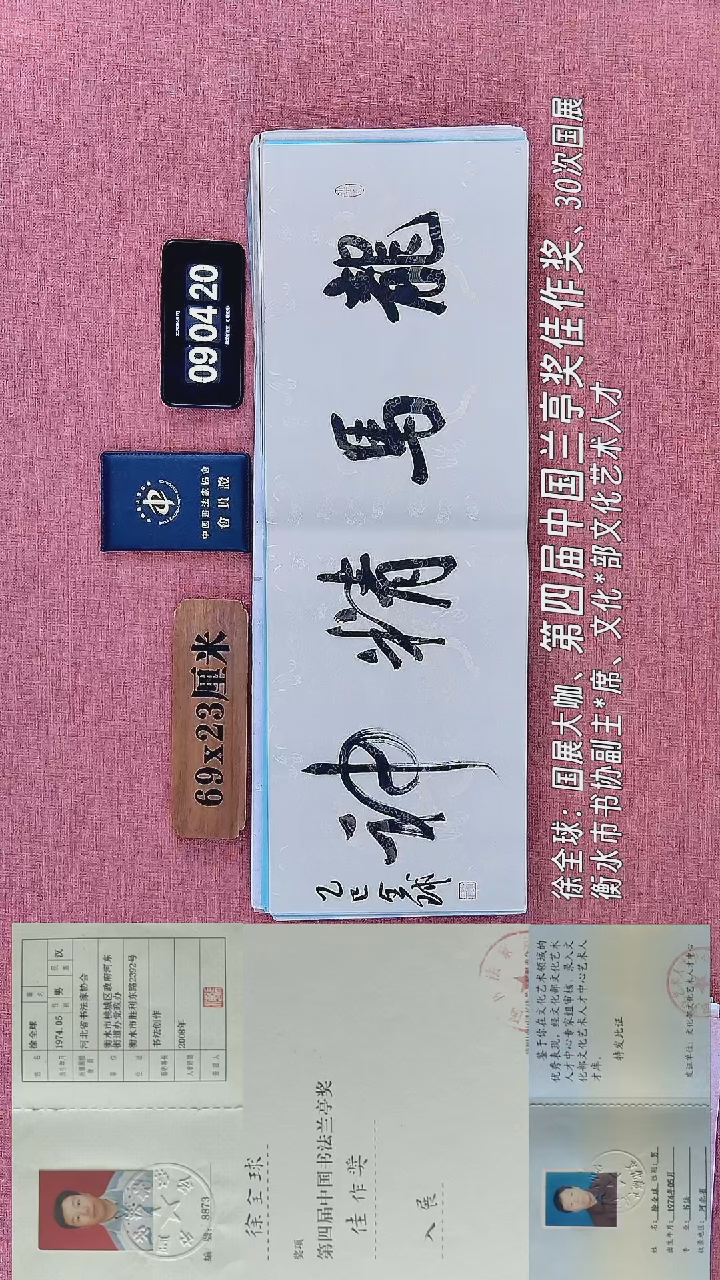 龍馬精神
乙巳全球
09 04 20
中国书法家协会
會員證
69x23厘米
徐全球：国展大咖、第四届中国兰亭奖佳作奖、30次国展
衡水市书协副主*席、文化*部文化艺术人才
徐全球
男
汉
1974.05
河北省书法家协会
衡水市桃城区政府河东
街道办党政办
衡水市胜利东路2292号
书法创作
2008年
编号: 8873
徐全球
奖项
第四届中国书法兰亭奖
佳作奖
入展
鉴于你在文化艺术领域的
优秀表现，经文化部文化艺术
人才中心专家组审核，录入文
化部文化艺术人才中心艺术人
才库。
特发此证
发证单位：文化部文化艺术人才中心
姓名：徐全球 性别：男
出生年月：1974年05月
专业：书法